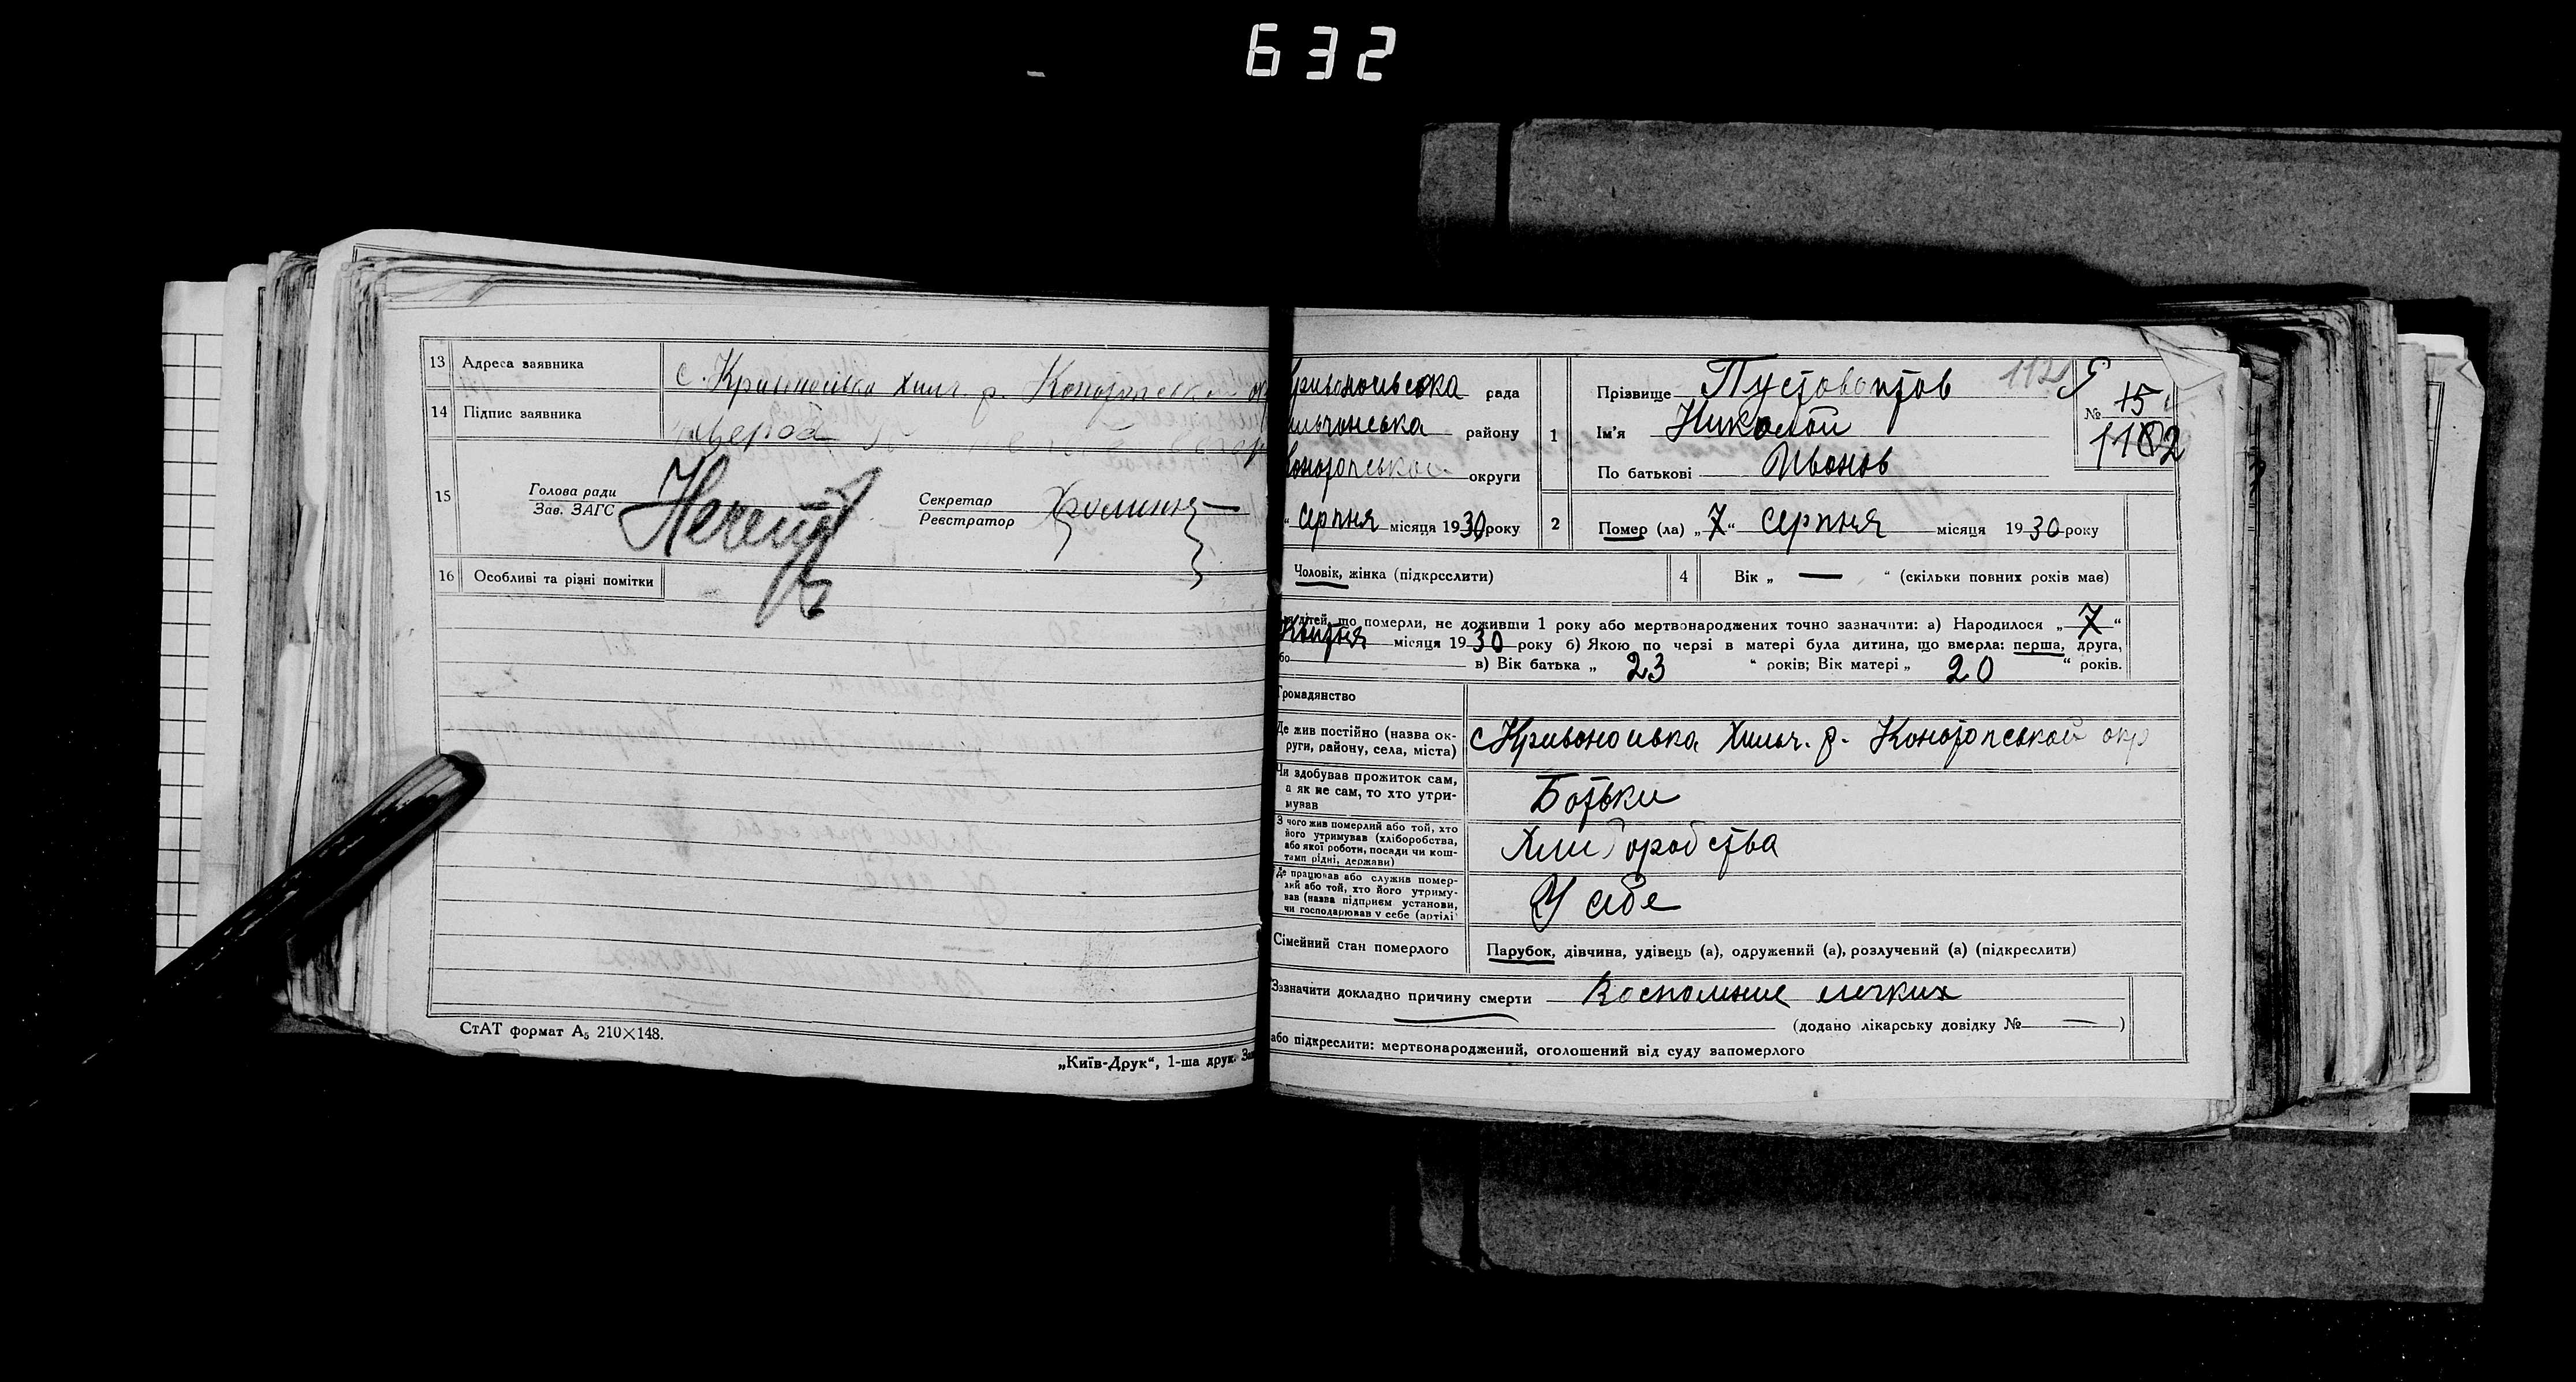 632
13 Адреса заявника с. Кривоносівка Хильч. р. Конотопської ок
14 Підпис заявника
15 Голова ради
Зав. ЗАГС
Секретар
Реєстратор
16 Особливі та різні помітки
СтАТ формат А5 210×148.
„Київ-Друк“, 1-ша друк. Зам
ривоносивська рада
ильчанська району
Конотопськои округи
“ серпня місяця 1930 року
1 Прізвище Пустовойтов
Ім'я Николай
По батькові Иванов
1121
№ 15
1182
2 Помер (ла) „7“ серпня місяця 1930 року
Чоловік, жінка (підкреслити)
4 Вік „ — “ (скільки повних років має)
дітей, що померли, не доживши 1 року або мертвонароджених точно зазначити: а) Народилося „7“
Квитня місяця 1930 року б) Якою по черзі в матері була дитина, що вмерла: перша, друга,
бо в) Вік батька „ 23 “ років; Вік матері „ 20 “ років.
Громадянство
Де жив постійно (назва ок-
руги, району, села, міста) с Кривоносивка Хильч. р. Конотопськой окр
Чи здобував прожиток сам,
а як не сам, то хто утри-
мував Батьки
З чого жив померлий або той, хто
його утримував (хліборобства,
або якої роботи, посади чи кош-
тами рідні, держави) Хлиборобства
Де працював або служив помер-
лий або той, хто його утриму-
вав (назва підприєм установи,
чи господарював у себе (артілі) У себе
Сімейний стан померлого Парубок, дівчина, удівець (а), одружений (а), розлучений (а) (підкреслити)
Зазначити докладно причину смерти Воспаление легких
(додано лікарську довідку № — )
або підкреслити: мертвонароджений, оголошений від суду запомерлого